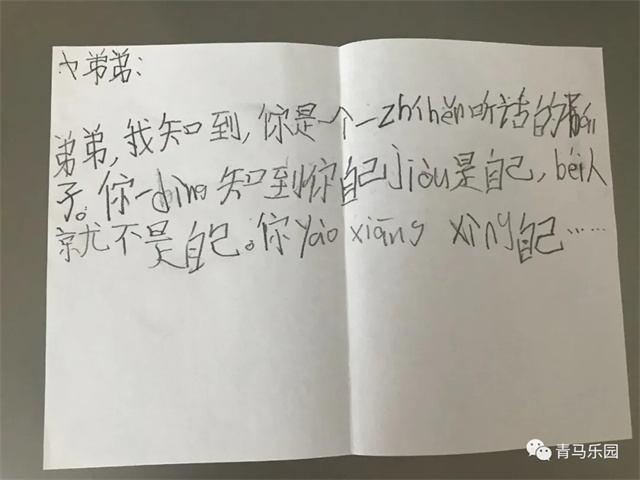 弟弟:
弟弟,我知到,你是一个一zhí hěn听话的
子。你一dìng知到你自己jiòu是自己,béi人
就不是自己。你yào xiāng xìng自己……
青马乐园